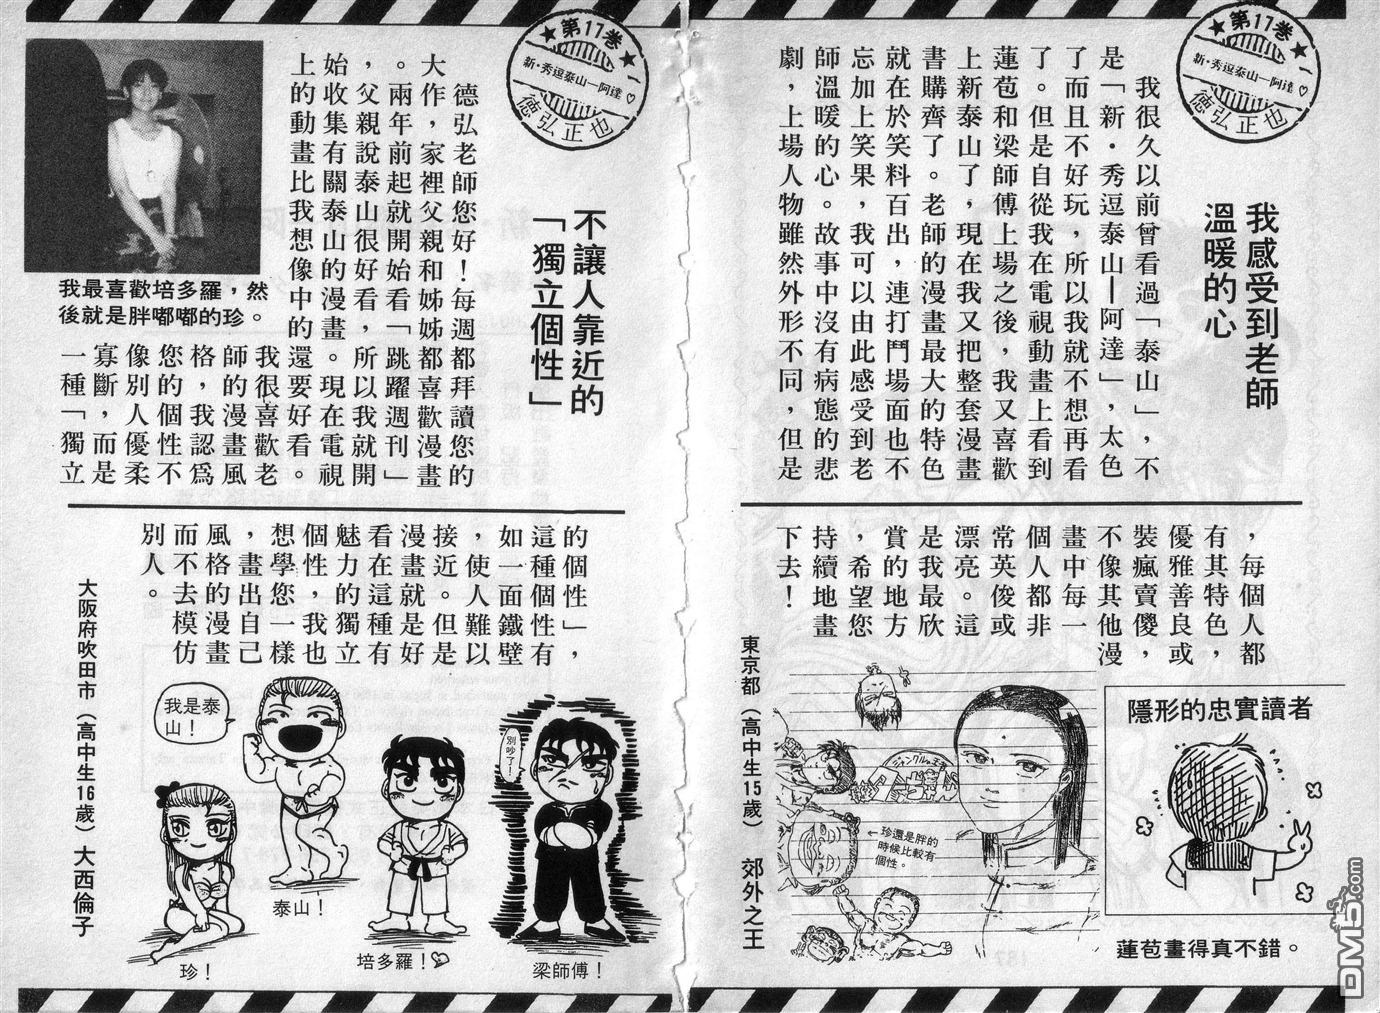 ★第17巻★
新・秀逗泰山—阿達♡
徳弘正也
我感受到老師
溫暖的心
我很久以前曾看過「泰山」，不
是「新・秀逗泰山—阿達」，太色
了而且不好玩，所以我就不想再看
了。但是自從我在電視動畫上看到
蓮苞和梁師傅上場之後，我又喜歡
上新泰山了，現在我又把整套漫畫
書購齊了。老師的漫畫最大的特色
就在於笑料百出，連打鬥場面也不
忘加上笑果，我可以由此感受到老
師溫暖的心。故事中沒有病態的悲
劇，上場人物雖然外形不同，但是
，每個人都
有其特色，
優雅善良或
裝瘋賣傻，
不像其他漫
畫中每一
個人都非
常英俊或
漂亮。這
是我最欣
賞的地方
，希望您
持續地畫
下去！
東京都（高中生15歲）　郊外之王
隱形的忠實讀者
蓮苞畫得真不錯。
ジャングルの王者
ターちゃん
←珍還是胖的
時候比較有
個性。
★第17巻★
新・秀逗泰山—阿達♡
徳弘正也
不讓人靠近的
「獨立個性」
德弘老師您好！每週都拜讀您的
大作，家裡父親和姊姊都喜歡漫畫
。兩年前起就開始看「跳躍週刊」
，父親說泰山很好看，所以我就開
始收集有關泰山的漫畫。現在電視
上的動畫比我想像中的還要好看。
我很喜歡老
師的漫畫風
格，我認爲
您的個性不
像別人優柔
寡斷，而是
一種「獨立
的個性」，
這種個性有
如一面鐵壁
，使人難以
接近。但是
漫畫就是好
看在這種有
魅力的獨立
個性，我也
想學您一樣
，畫出自己
風格的漫畫
而不去模仿
別人。
大阪府吹田市（高中生16歲）大西倫子
我最喜歡培多羅，然
後就是胖嘟嘟的珍。
我是泰
山！
別吵了！
珍！
泰山！
培多羅！♡
梁師傅！
DM5.com